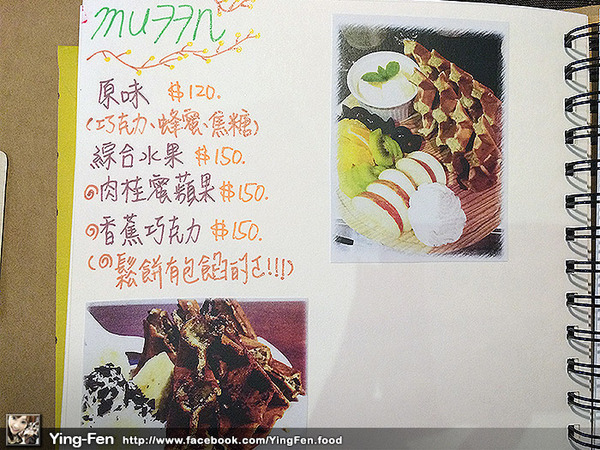 muffn
原味 $120.
(巧克力、蜂蜜、焦糖)
綜合水果 $150.
肉桂蜜蘋果 $150.
香蕉巧克力 $150.
鬆餅有包餡的
Ying-Fen http://www.facebook.com/YingFen.food